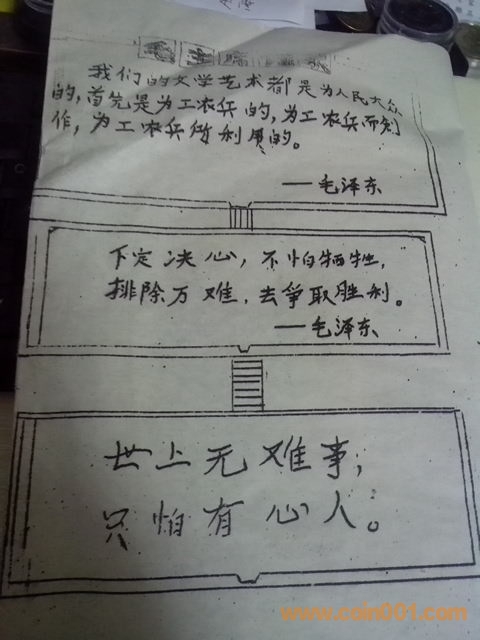 主席
我们的文学艺术都是为人民大众
的，首先是为工农兵的，为工农兵而创
作，为工农兵所利用的。
——毛泽东
下定决心，不怕牺牲，
排除万难，去争取胜利。
——毛泽东
世上无难事，
只怕有心人。
www.coin001.com